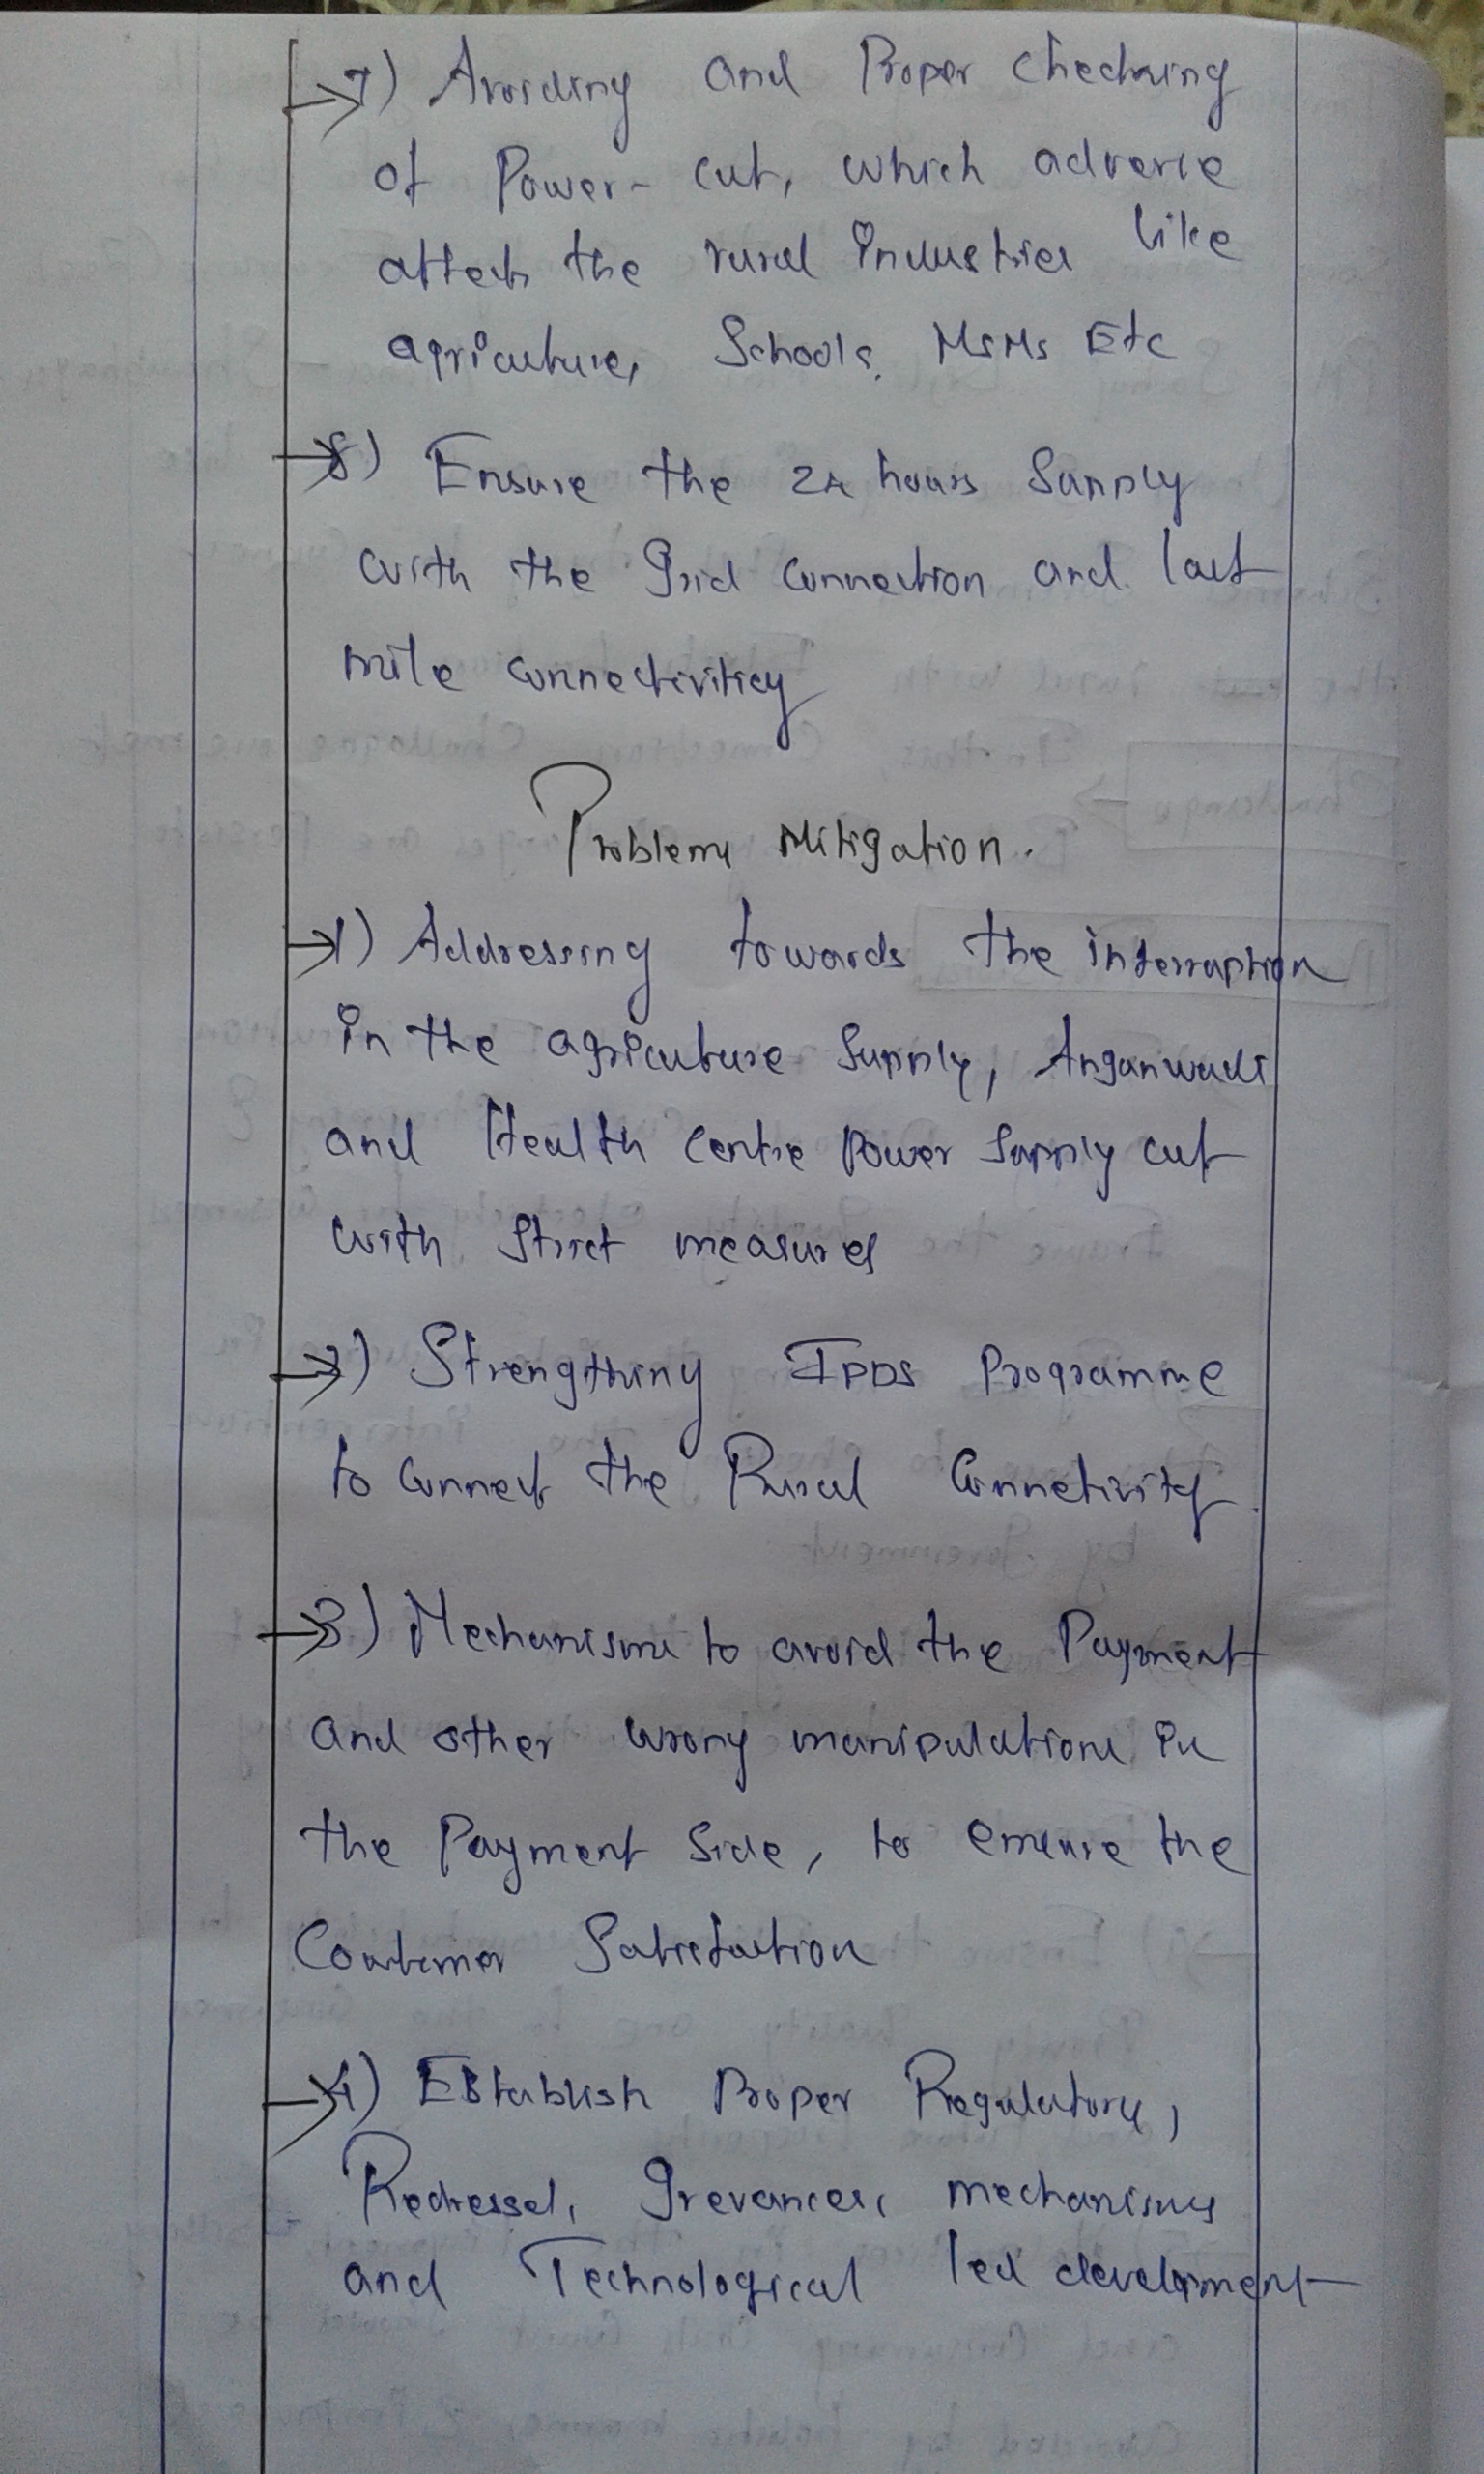 →7) Avoiding and Proper Checking
of Power- cut, which adverse
affects the rural industries like
agriculture, Schools, MSMs Etc
→8) Ensure the 24 hours Supply
with the Grid connection and last
mile connectivity
Problems Mitigation.
→1) Addressing towards the interruption
in the agriculture Supply, Anganwadi
and Health Centre Power Supply cut
with Strict measures
→2) Strengthing IPDS Programme
to connect the Rural Connetivity.
→3) Mechanisms to avoid the Payment
and other wrong manipulations in
the Payment Side, to ensure the
Customer Satisfaction
→4) Establish Proper Regulatory,
Redressel, Grevances, mechanisms
and Technological led development